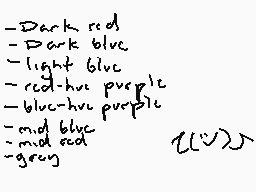 - Dark red
- Dark blue
- light blue
- red-hue purple
- blue-hue purple
- mid blue
- mid red
- gray